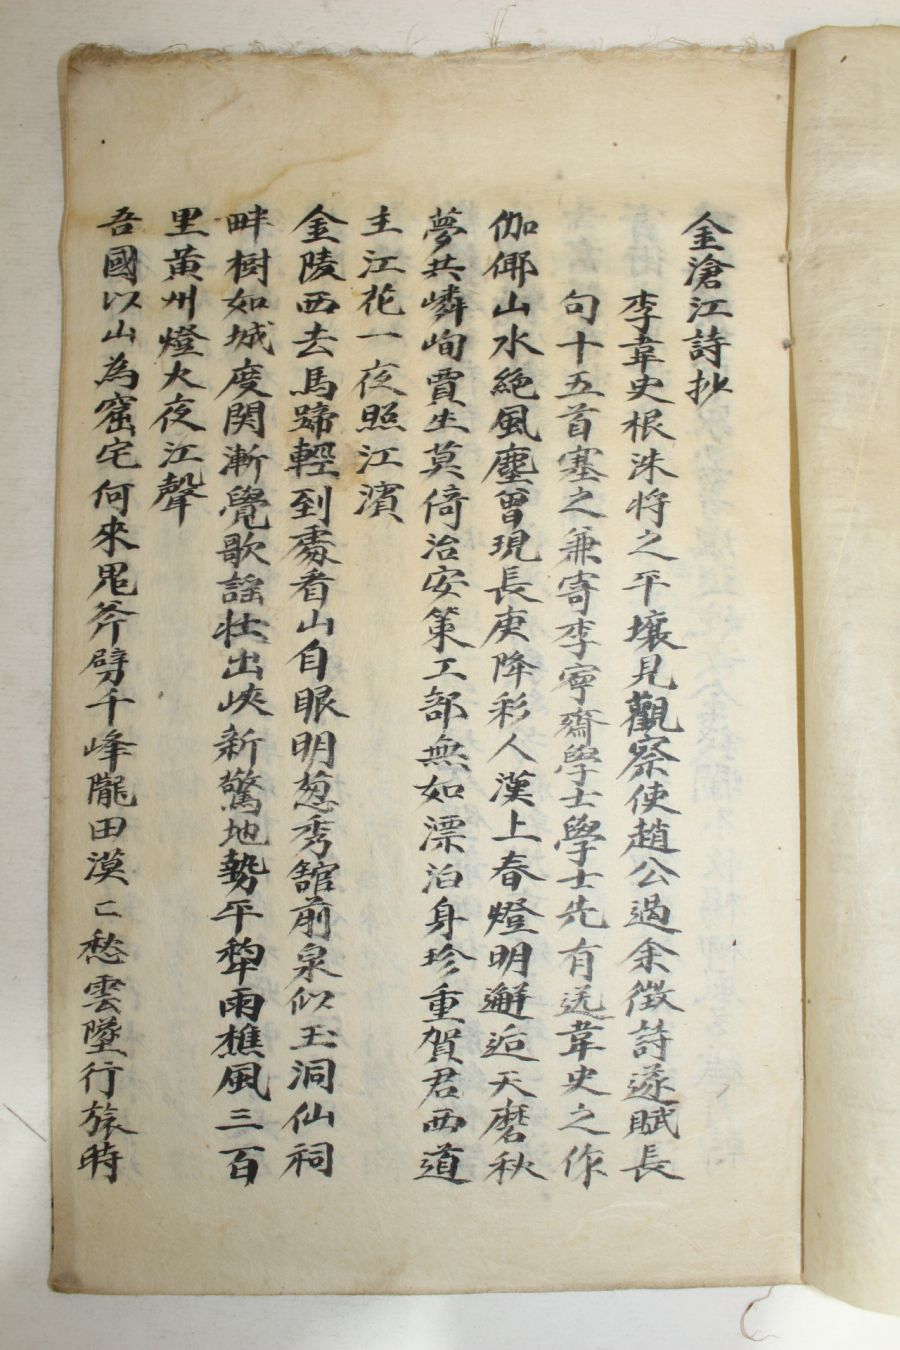 金滄江詩抄
李韋史根洙將之平壤見觀察使趙公過余徵詩遂賦長
句十五首塞之兼寄李寧齋學士學士先有送韋史之作
伽倻山水絶風塵曾現長庚降彩人漢上春燈明邂逅天磨秋
夢共嶙峋賈生莫倚治安策工部無如漂泊身珍重賀君西道
主江花一夜照江濱
金陵西去馬蹄輕到處看山自眼明葱秀館前泉似玉洞仙祠
畔樹如城度関漸覺歌謠壯出峽新驚地勢平犂雨樵風三百
里黄州燈火夜江聲
吾國以山為窟宅何來鬼斧劈千峰隴田漠〻愁雲墜行旅時